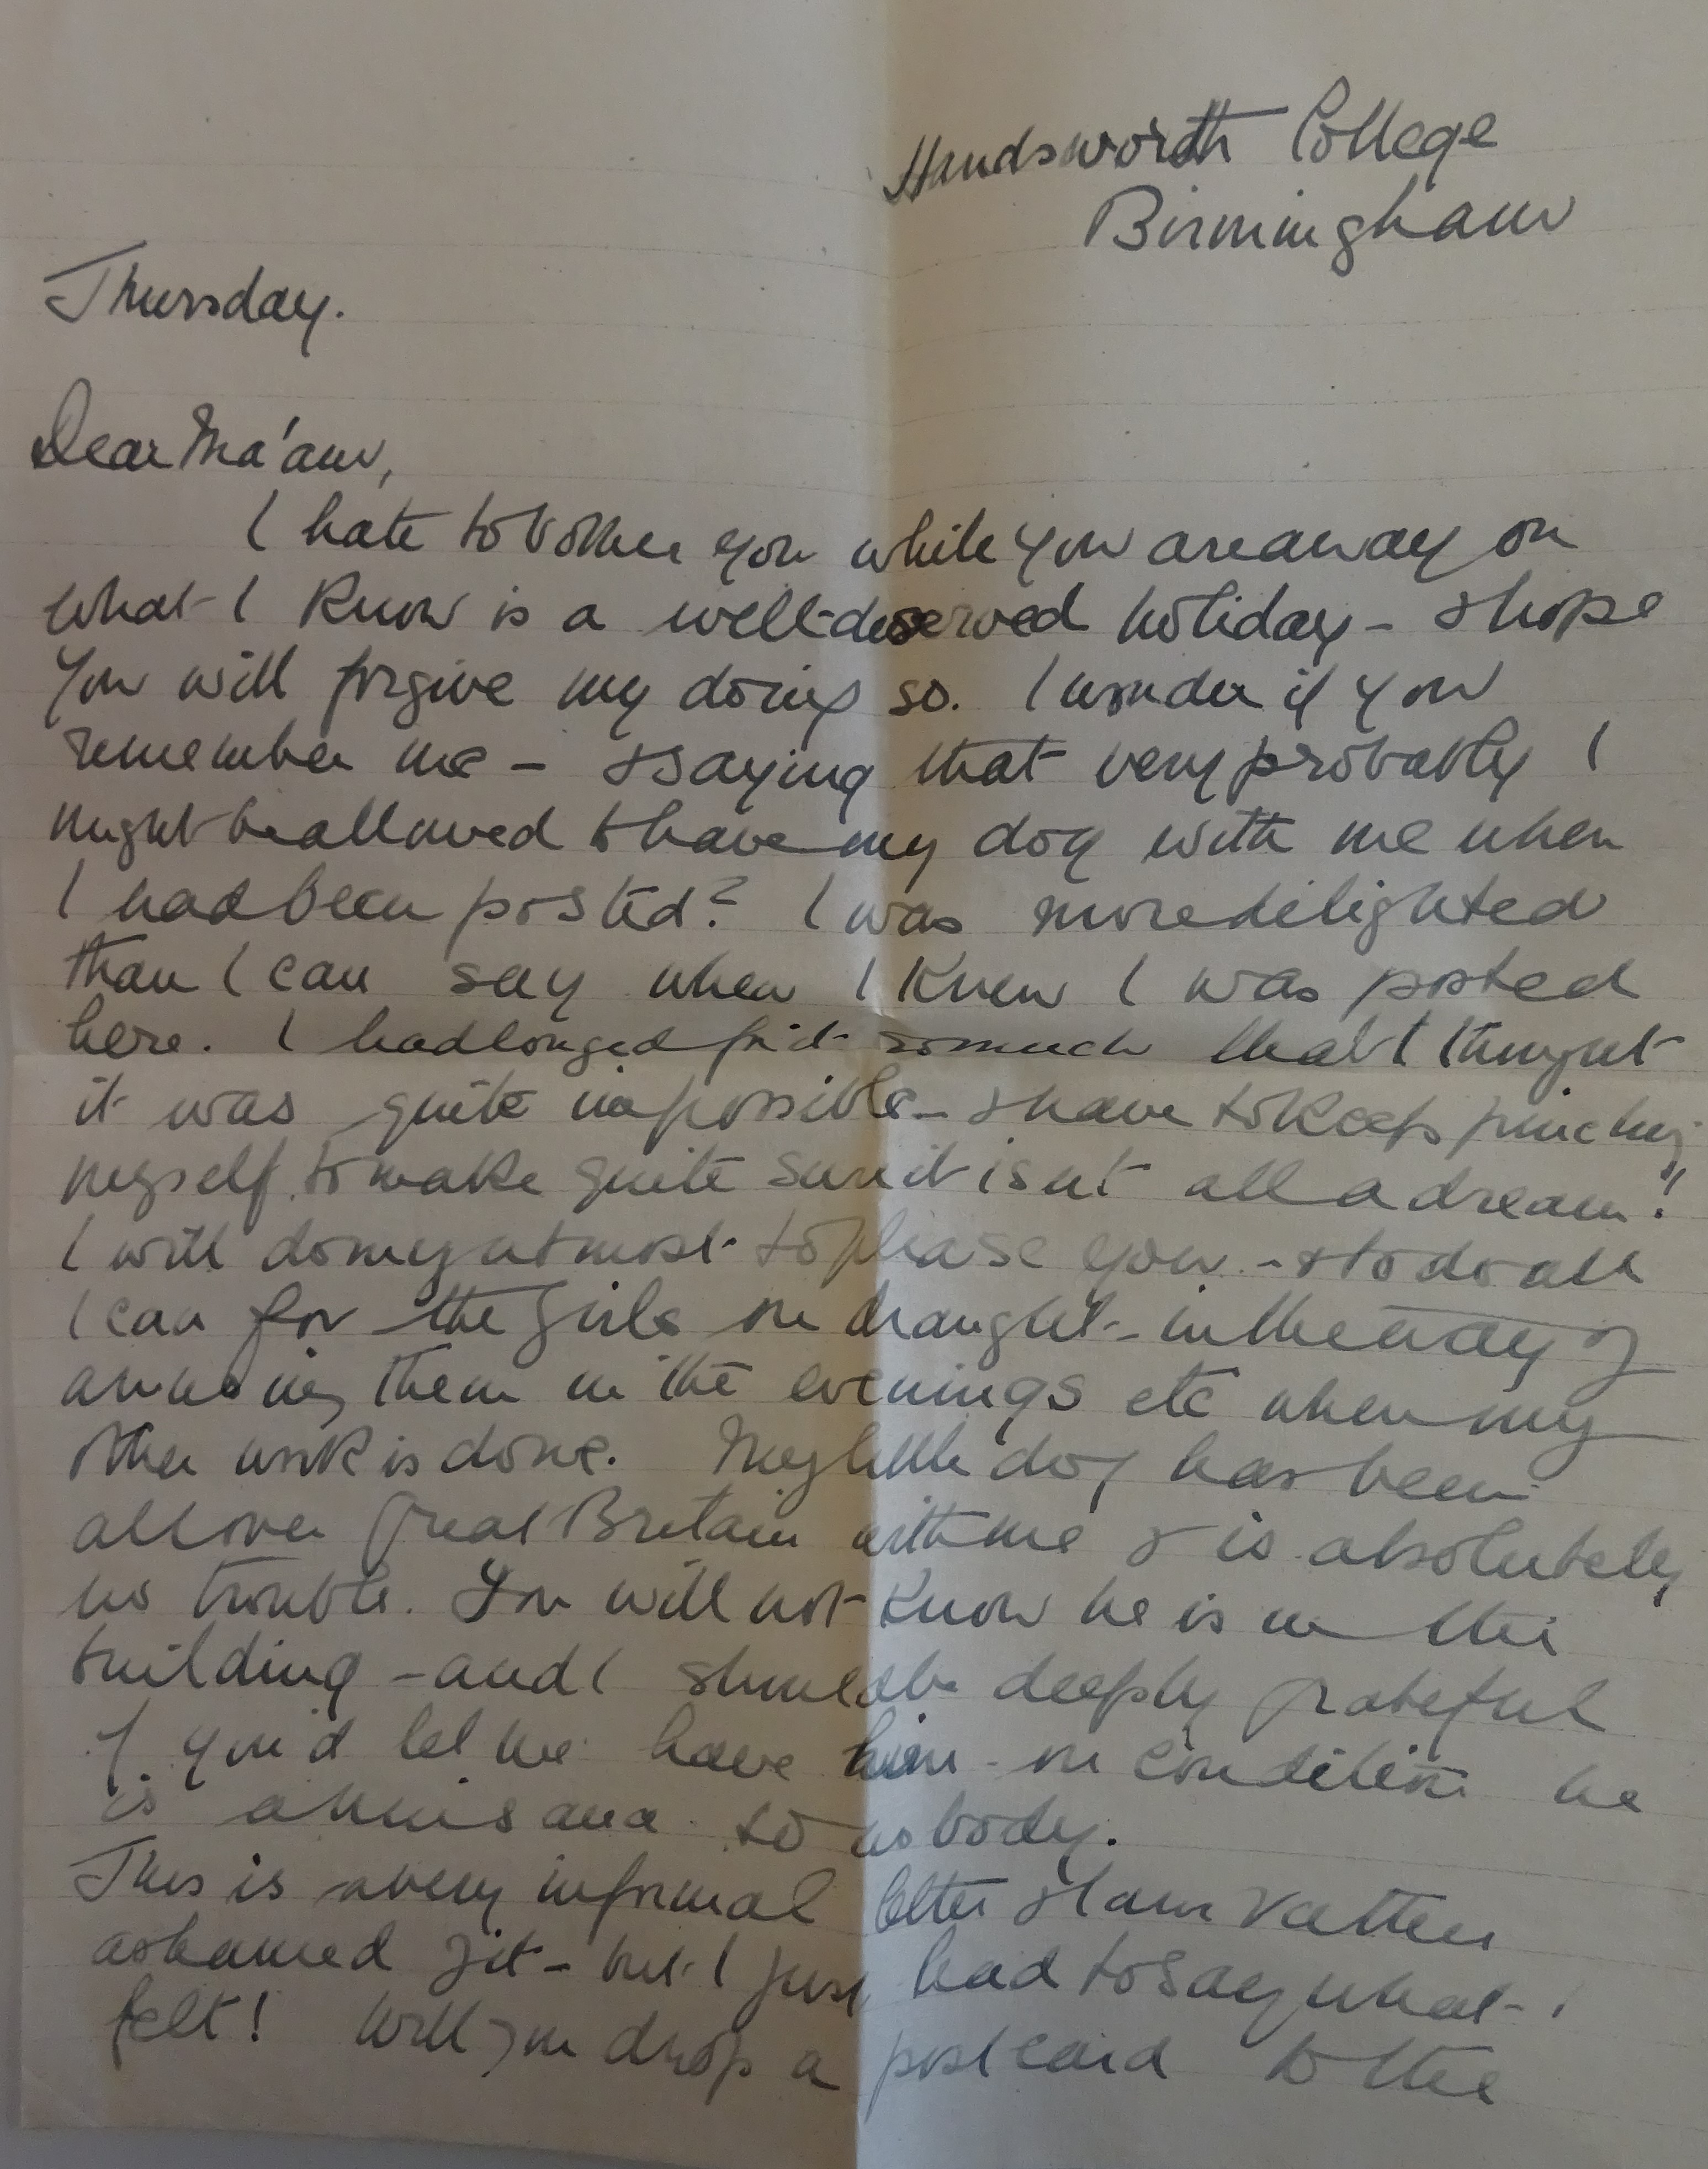 Handsworth College
Birmingham
Thursday.
Dear Ma'am,
I hate to bother you while you are away on
what I know is a well-deserved holiday - & hope
you will forgive my doing so. I wonder if you
remember me - & saying that very probably I
might be allowed to have my dog with me when
I had been posted? I was more delighted
than I can say when I knew I was posted
here. I had longed for it so much that I thought
it was quite impossible - & have to keep pinching
myself to make quite sure it isn't all a dream!
I will do my utmost to please you - & to do all
I can for the girls on draught - in the way of
amusing them in the evenings etc when my
other work is done. My little dog has been
all over Great Britain with me & is absolutely
no trouble. You will not know he is in the
building - and I should be deeply grateful
if you'd let me have him - on condition he
is a nuisance to nobody.
This is a very informal letter & I am rather
ashamed of it - but I just had to say what I
felt! Will you drop a postcard to the